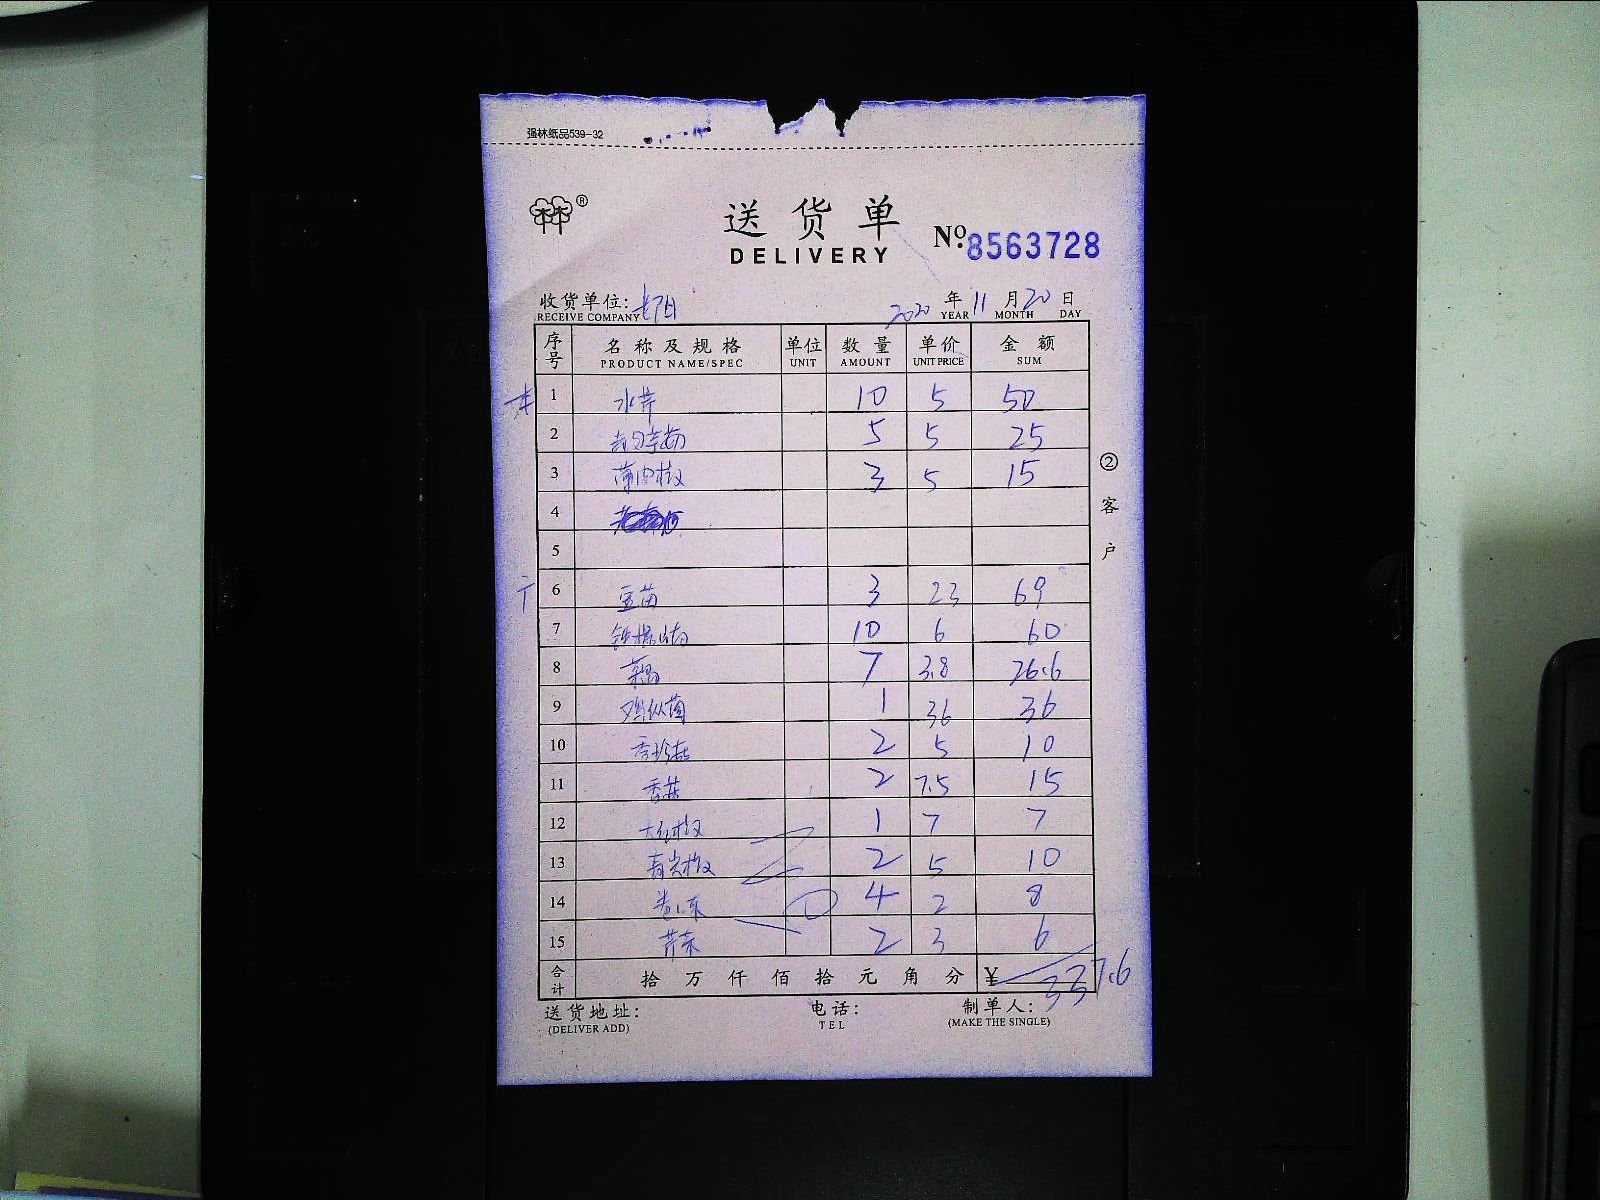 强林纸品539-32
®
送货单
DELIVERY
Nº:8563728
收货单位:
RECEIVE COMPANY
2020年11月20日
YEAR MONTH DAY
序号 名称及规格 单位 数量 单价 金额
PRODUCT NAME/SPEC UNIT AMOUNT UNIT PRICE SUM
1 水芹 10 5 50
2 5 5 25
3 薄皮椒 3 5 15
4
5
6 豆苗 3 23 69
7 铁棍山药 10 6 60
8 7 3.8 26.6
9 鸡枞菌 1 36 36
10 秀珍菇 2 5 10
11 香菇 2 7.5 15
12 大红椒 1 7 7
13 青尖椒 2 5 10
14 4 2 8
15 芹菜 2 3 6
合计 拾万仟佰拾元角分 ¥ 337.6
②客户
送货地址: 电话: 制单人:
(DELIVER ADD) TEL (MAKE THE SINGLE)